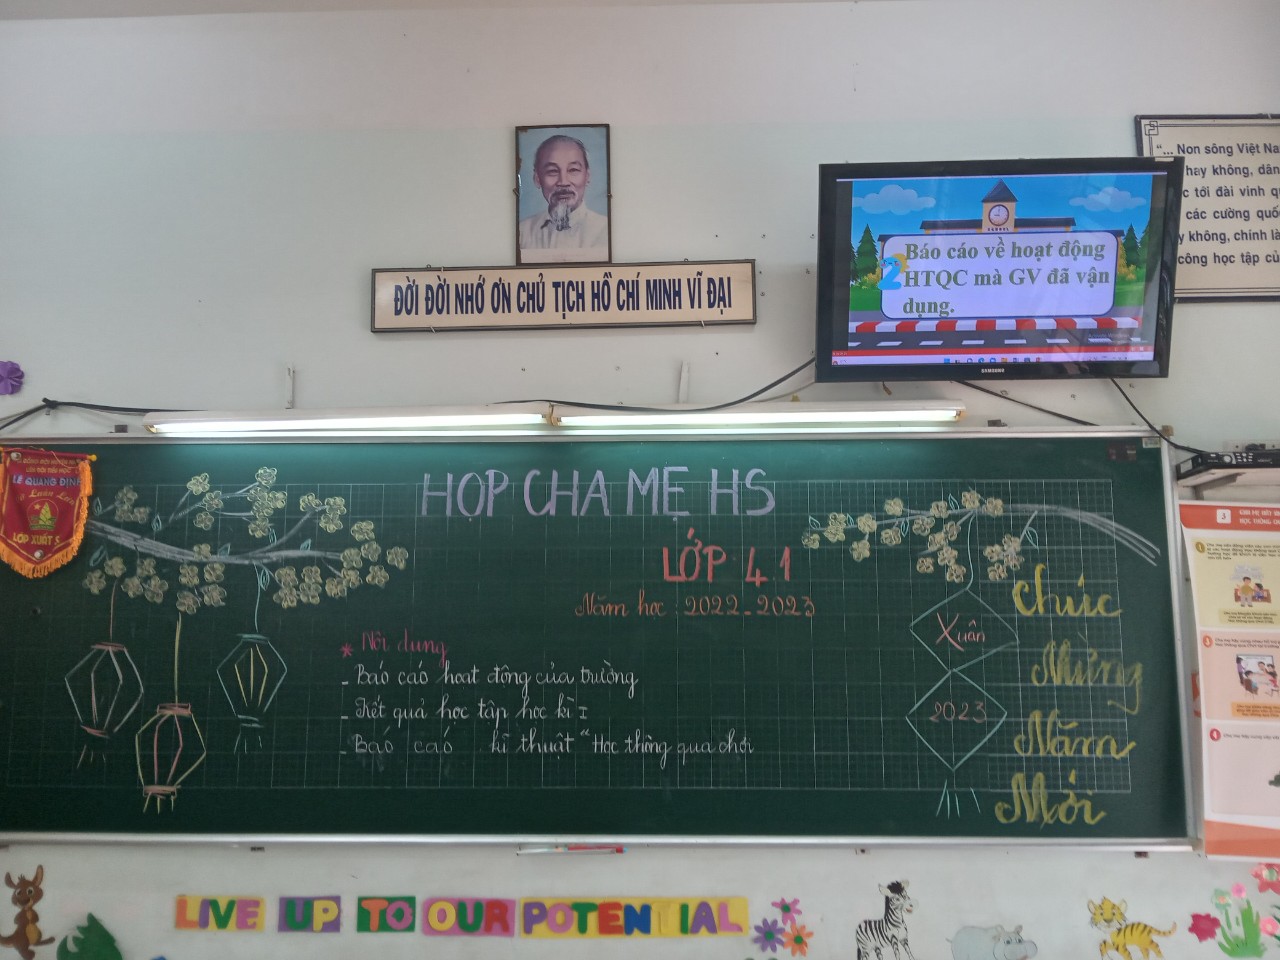 ĐỜI ĐỜI NHỚ ƠN CHỦ TỊCH HỒ CHÍ MINH VĨ ĐẠI
2
Báo cáo về hoạt động
HTQC mà GV đã vận
dụng.
SCHOOL
SAMSUNG
"... Non sông Việt Na
hay không, dân
c tới đài vinh q
các cường quố
y không, chính là
công học tập củ
LÊ QUANG ĐỊNH
LỚP XUẤT S
HỌP CHA MẸ HS
LỚP 41
Năm học : 2022-2023
* Nội dung
- Báo cáo hoạt động của trường
- Kết quả học tập học kì I
- Báo cáo kĩ thuật "Học thông qua chơi
Xuân
2023
Chúc
Mừng
Năm
Mới
3
1
3
4
LIVE UP TO OUR POTENTIAL